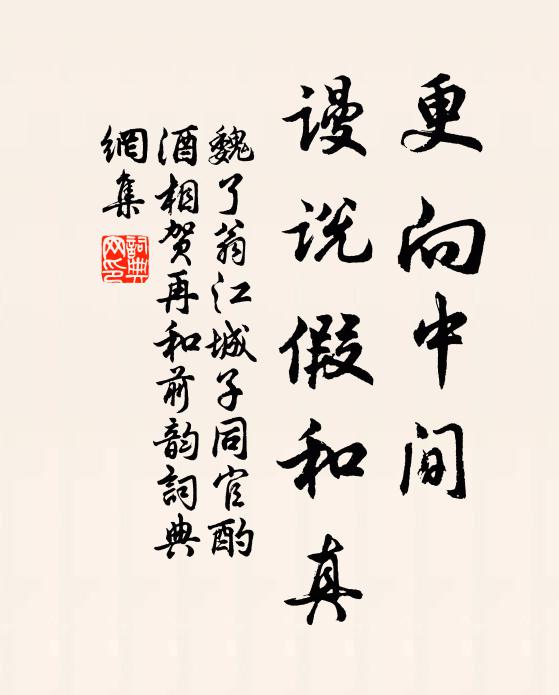 更向中间
谩说假和真
魏了翁江城子同官酌
酒相贺再和前韵詞典
網集
詞典网印